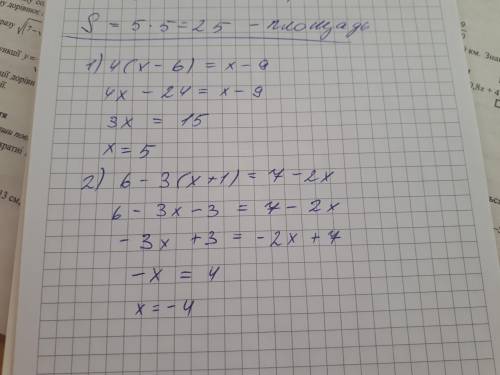 S = 5 · 5 = 25 - площадь
1) 4(x - 6) = x - 9
4x - 24 = x - 9
3x = 15
x = 5
2) 6 - 3(x+1) = 7 - 2x
6 - 3x - 3 = 7 - 2x
-3x + 3 = -2x + 7
-x = 4
x = -4